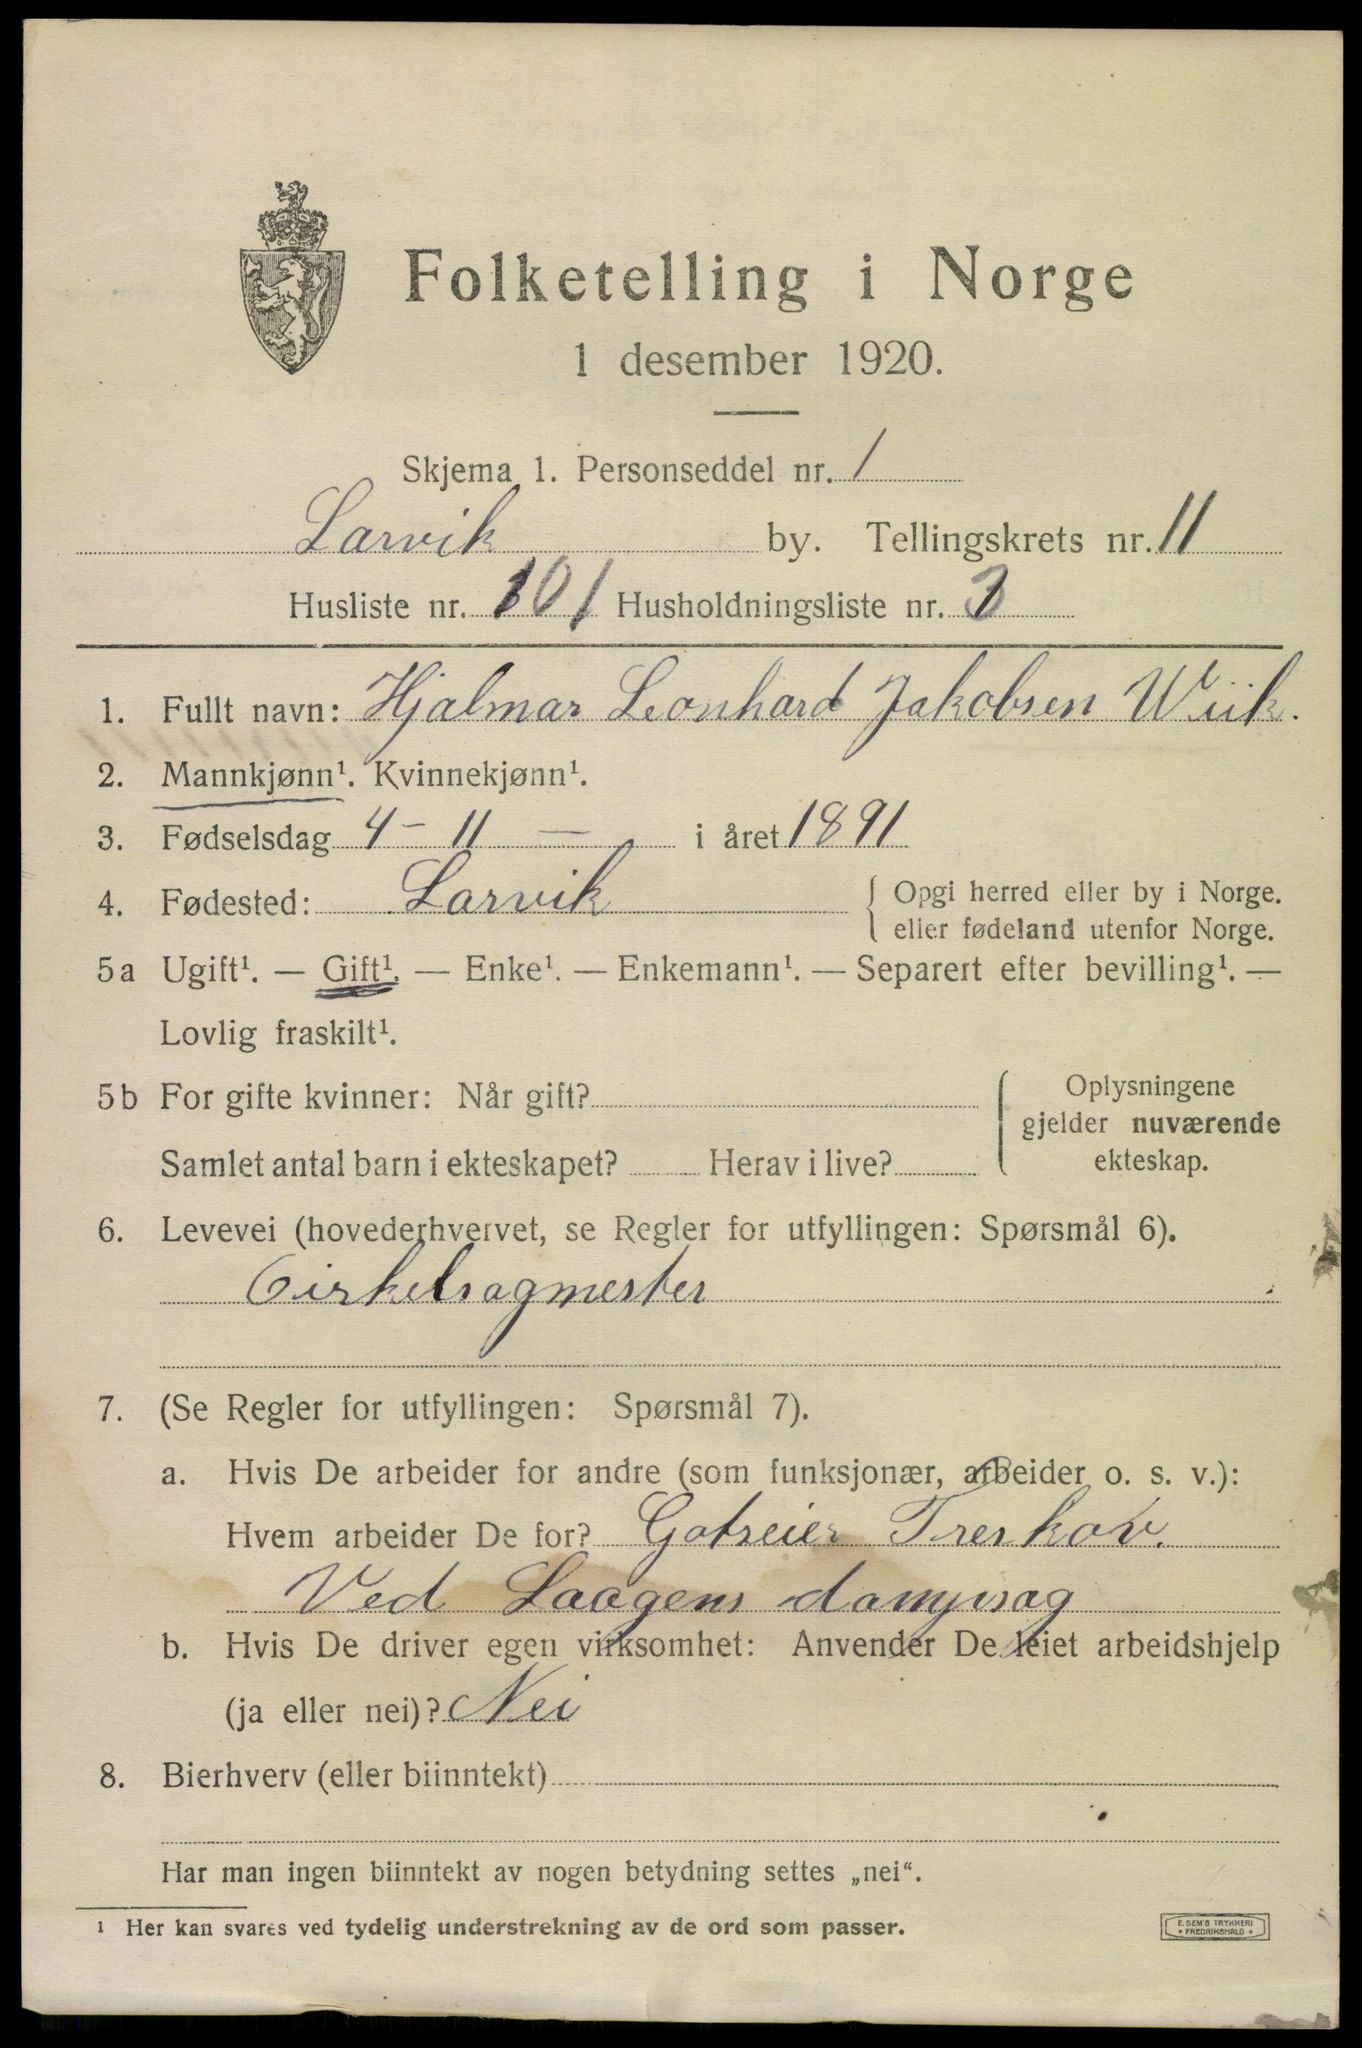 Folketelling i Norge
1 desember 1920.
Skjema 1. Personseddel nr. 1
Larvik by. Tellingskrets nr. 11
Husliste nr. 101 Husholdningsliste nr.
1. Fullt navn: Hjalmar Leonhard Jakobsen Wiik.
2. Mannkjønn¹. Kvinnekjønn¹.
3. Fødselsdag 4 - 11 — i året 1891
4. Fødested: Larvik { Opgi herred eller by i Norge.
eller fødeland utenfor Norge.
5 a Ugift¹. — Gift¹. — Enke¹. — Enkemann¹. — Separert efter bevilling¹. —
Lovlig fraskilt¹.
5 b For gifte kvinner: Når gift? { Oplysningene
gjelder nuværende
Samlet antal barn i ekteskapet? Herav i live? ekteskap.
6. Levevei (hovederhvervet, se Regler for utfyllingen: Spørsmål 6).
Cirkelsagmester
7. (Se Regler for utfyllingen: Spørsmål 7).
a. Hvis De arbeider for andre (som funksjonær, arbeider o. s. v.):
Hvem arbeider De for?
Ved Laagens dampsag
b. Hvis De driver egen virksomhet: Anvender De leiet arbeidshjelp
(ja eller nei)? Nei
8. Bierhverv (eller biinntekt)
Har man ingen biinntekt av nogen betydning settes „nei“.
¹ Her kan svares ved tydelig understrekning av de ord som passer.
E. SEM'S TRYKKERI
FREDRIKSHALD